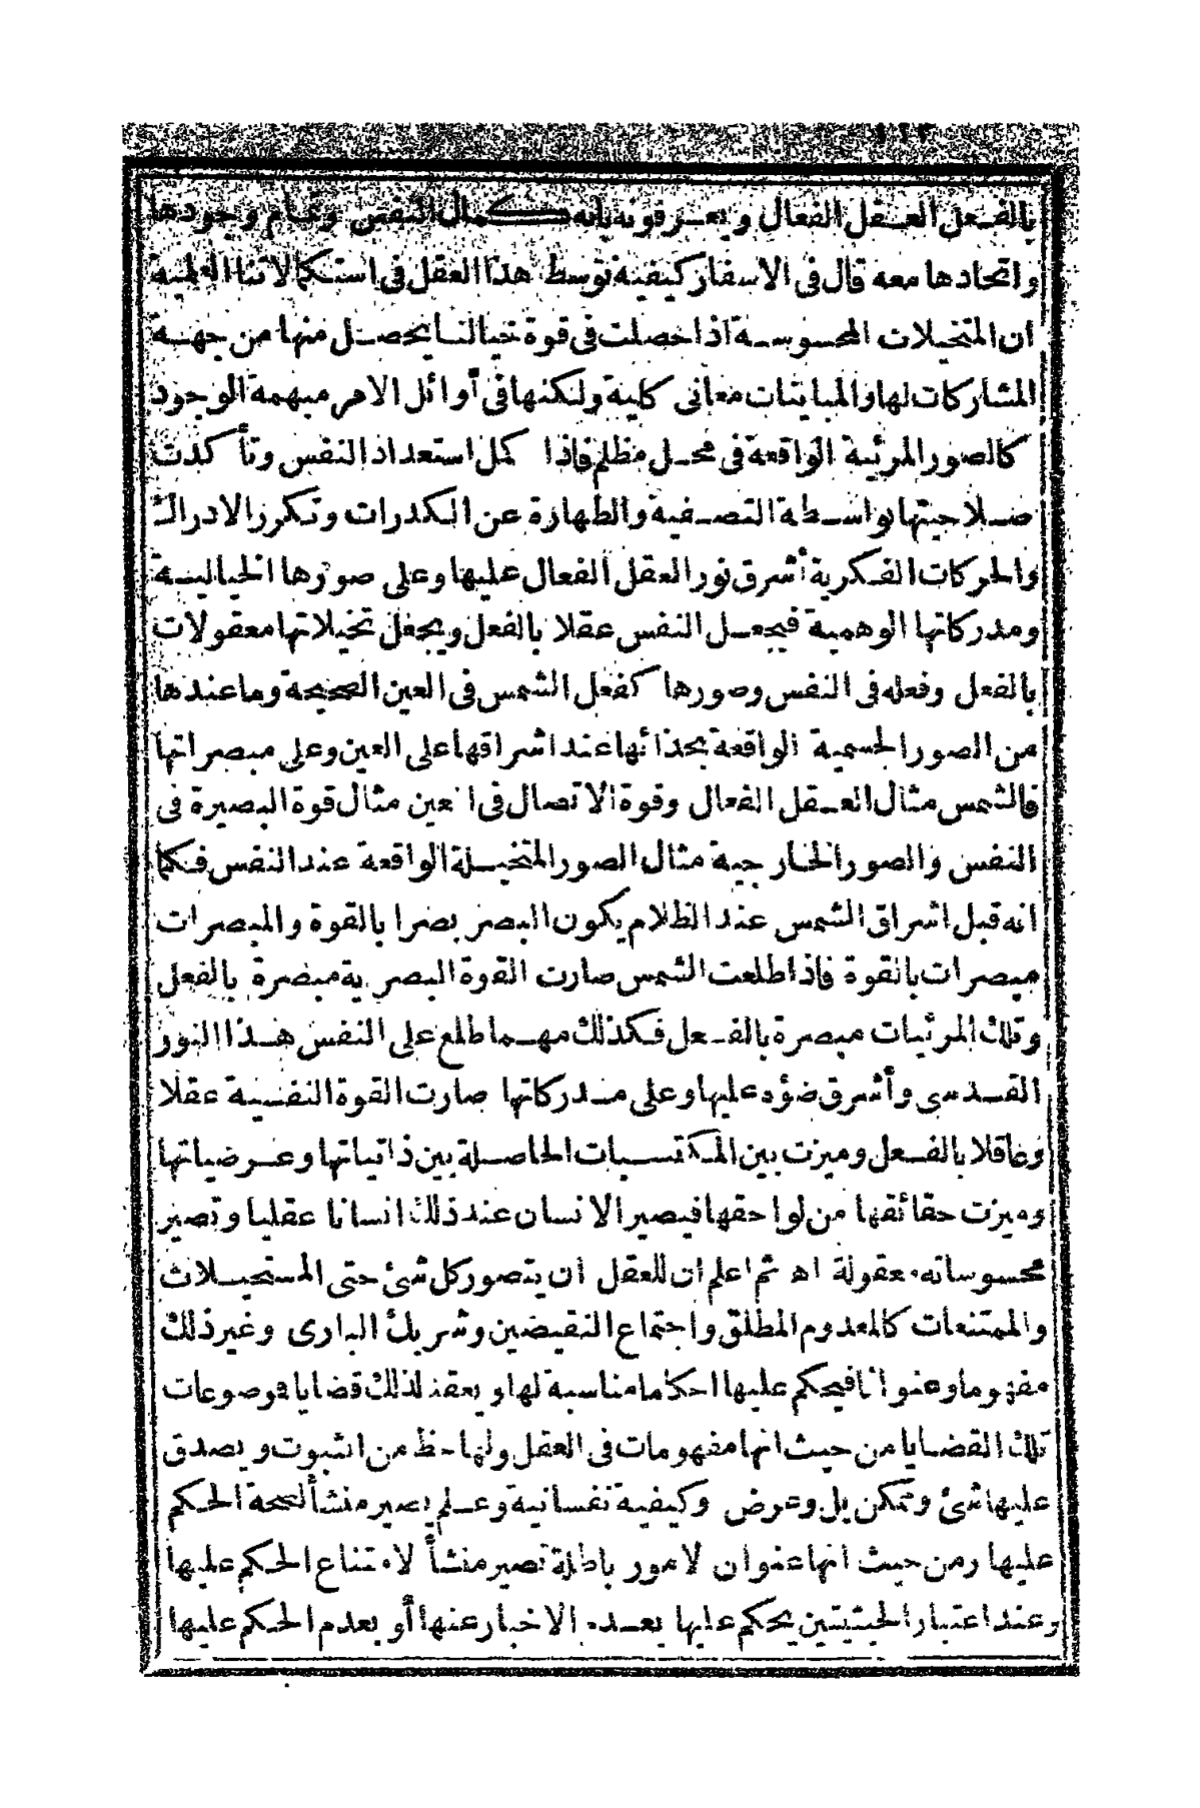 بالفعل العقل الفعال ويعرفونه بأنه كمال النفس وتمام وجودها
واتحادها معه قال فى الاسفار كيفية توسط هذا العقل فى استكمالاتنا العلمية
ان المتخيلات المحسوسة اذا حصلت فى قوة خيالنا يحصل منها من جهة
المشاركات لها والمباينات معانى كلية ولكنها فى أوائل الامر مبهمة الوجود
كالصور المرئية الواقعة فى محل مظلم فاذا كمل استعداد النفس وتأكدت
صلاحيتها بواسطة التصفية والطهارة عن الكدرات وتكرر الادراك
والحركات الفكرية أشرق نور العقل الفعال عليها وعلى صورها الخيالية
ومدركاتها الوهمية فيجعل النفس عقلا بالفعل ويجعل تخيلاتها معقولات
بالفعل وفعله فى النفس وصورها كفعل الشمس فى العين الصحيحة وما عندها
من الصور الجسمية الواقعة بحذائها عند اشراقها على العين وعلى مبصراتها
فالشمس مثال العقل الفعال وقوة الاتصال فى العين مثال قوة البصيرة فى
النفس والصور الخارجية مثال الصور المتخيلة الواقعة عند النفس فكما
انه قبل اشراق الشمس عند الظلام يكون البصر بصرا بالقوة والمبصرات
مبصرات بالقوة فاذا طلعت الشمس صارت القوة البصرية مبصرة بالفعل
وتلك المرئيات مبصرة بالفعل فكذلك مهما طلع على النفس هذا النور
القدسى وأشرق ضؤه عليها وعلى مدركاتها صارت القوة النفسية عقلا
وعاقلا بالفعل وميزت بين المكتسبات الحاصلة بين ذاتياتها وعرضياتها
وميزت حقائقها من لواحقها فيصير الانسان عند ذلك انسانا عقليا وتصير
محسوساته معقولة اه ثم اعلم ان للعقل ان يتصور كل شئ حتى المستحيلات
والممتنعات كالمعدوم المطلق واجتماع النقيضين وشريك البارى وغير ذلك
مفهوما وعنوانا فيحكم عليها احكاما مناسبة لها ويعقد لذلك قضايا فموضوعات
تلك القضايا من حيث انها مفهومات فى العقل ولها حظ من الثبوت ويصدق
عليها شئ وتمكن بل وعرض وكيفية نفسانية وعلم يصير منشأ لصحة الحكم
عليها ومن حيث انها عنوان لامور باطلة تصير منشأ لامتناع الحكم عليها
وعند اعتبار الحيثيتين يحكم عليها بعدم الاخبار عنها أو بعدم الحكم عليها